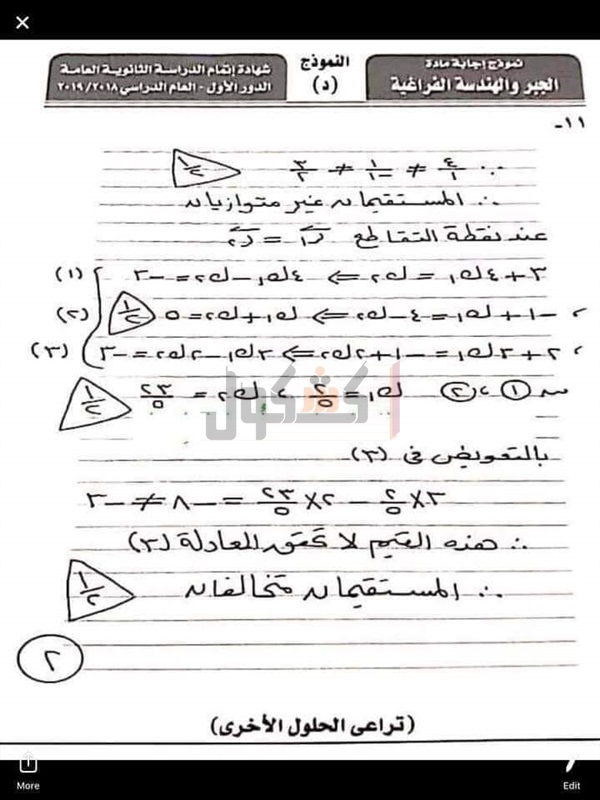 نموذج إجابة مادة
الجبر والهندسة الفراغية
النموذج
(د)
شهادة إتمام الدراسة الثانوية العامة
الدور الأول - العام الدراسى ٢٠١٨/٢٠١٩
١١-
∵ ٤/١ ≠ ١/-١ ≠ ٣/٢ ١/٢
∴ المستقيمان غير متوازيان
عند نقطة التقاطع ر١ = ر٢
٣ + ٤ك١ = ك٢ ⇐ ٤ك١ - ك٢ = -٣ (١)
، -١ + ك١ = ٤ - ك٢ ⇐ ك١ + ك٢ = ٥ ١/٢ (٢)
، ٢ + ٣ك١ = -١ + ٢ك٢ ⇐ ٣ك١ - ٢ك٢ = -٣ (٣)
من ①، ② ك١ = ٢/٥ ، ك٢ = ٢٣/٥ ١/٢
أكشكول
بالتعويض فى (٣)
٣ × ٢/٥ - ٢ × ٢٣/٥ = -٨ ≠ -٣
∴ هذه القيم لا تحقق المعادلة (٣)
∴ المستقيمان متخالفان ١/٢
٢
(تراعى الحلول الأخرى)
More
Edit